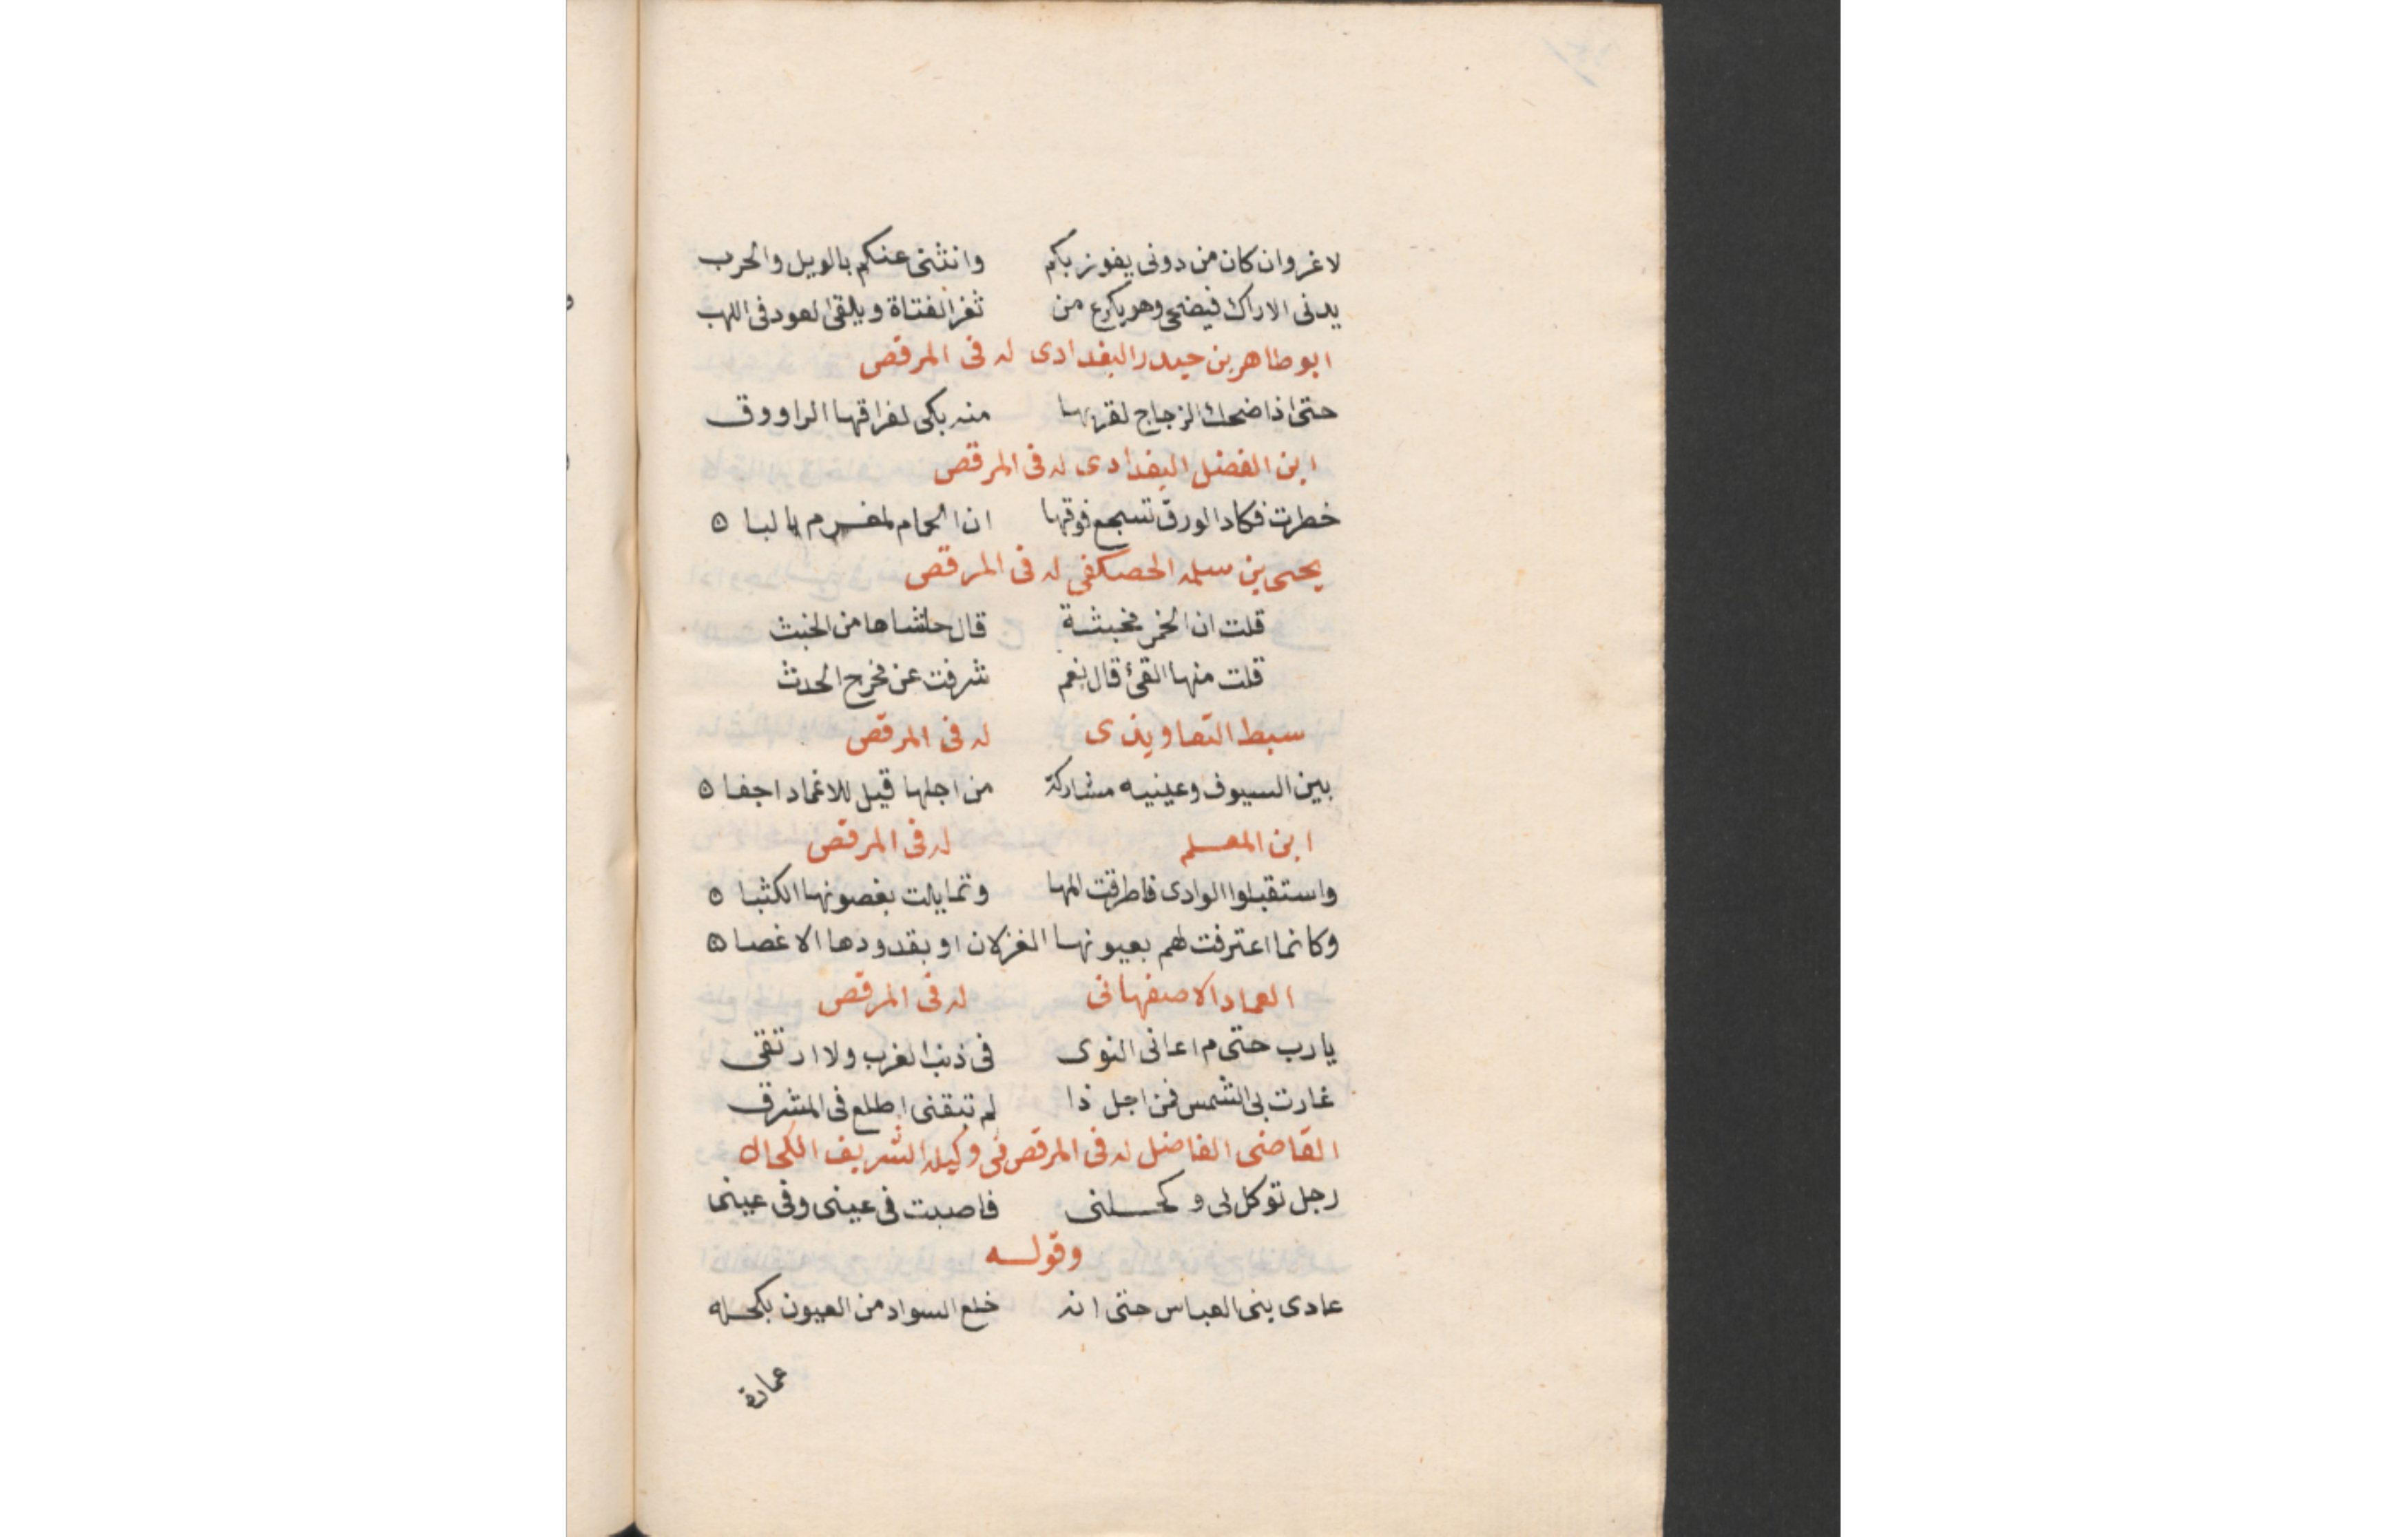 لاغروان كان من دونى يفوز بكم وانثنى عنكم بالويل والحرب
يدنى الاراك فيضحى وهو يكرع من ثغر الفتاة ويلقى لعود فى اللهب
ابو طاهر بن حيدر البغدادى له فى المرقص
حتى اذا ضحك الزجاج لقربها منه بكى لفراقها الراووق
ابن الفضل البغدادى له فى المرقص
خطرت فكاد الورق تسجع فوقها ان الحمام لمغرم بالبان
يحيى بن سلمه الحصكفى له فى المرقص
قلت ان الخمر مخبثة قال حاشاها من الخبث
قلت منها القئ قال نعم شرفت عن مخرج الحدث
سبط التعاويذى له فى المرقص
بين السيوف وعينيه مشاركة من اجلها قيل للاغماد اجفان
ابن المعلم له فى المرقص
واستقبلوا الوادى فاطرقت المها وتمايلت بغصونها الكثبان
وكانما اعترفت لهم بعيونها الغزلان او بقدودها الاغصان
العماد الاصفهانى له فى المرقص
يارب حتى م اعانى النوى فى ذنب الغرب ولا ارتقى
غارت بى الشمس فمن اجل ذا لم تبقنى اطلع فى المشرق
القاضى الفاضل له فى المرقص فى وكيله الشريف الكحال
رجل توكل لى وكحلنى فاصبت فى عينى وفى عينى
وقوله
عادى بنى العباس حتى انه خلع السواد من العيون بكحله
عمارة